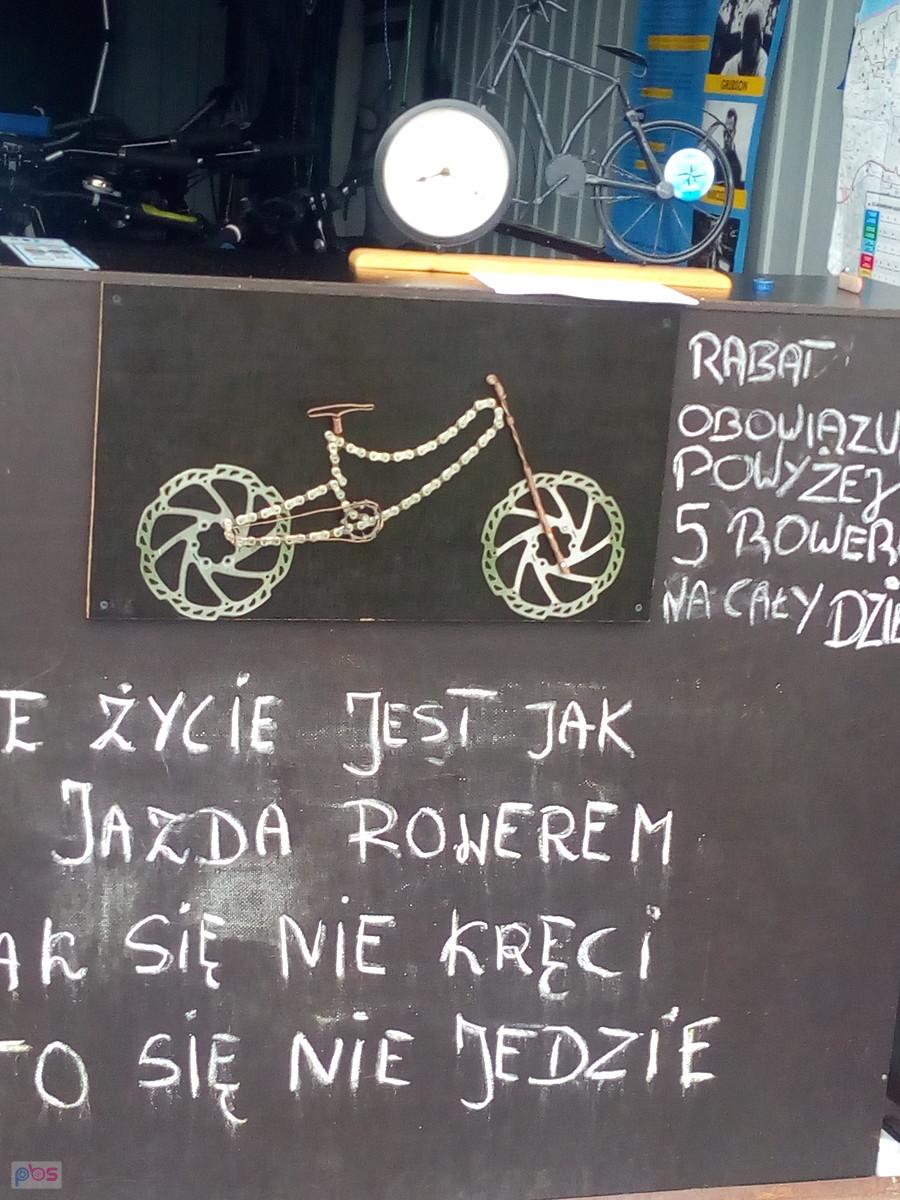 GRUBSON
RABAT
OBOWIĄZU
POWYŻEJ
5 ROWER
NA CAŁY DZIE
E ŻYCIE JEST JAK
JAZDA ROWEREM
AK SIĘ NIE KRĘCI
TO SIĘ NIE JEDZIE
pbs